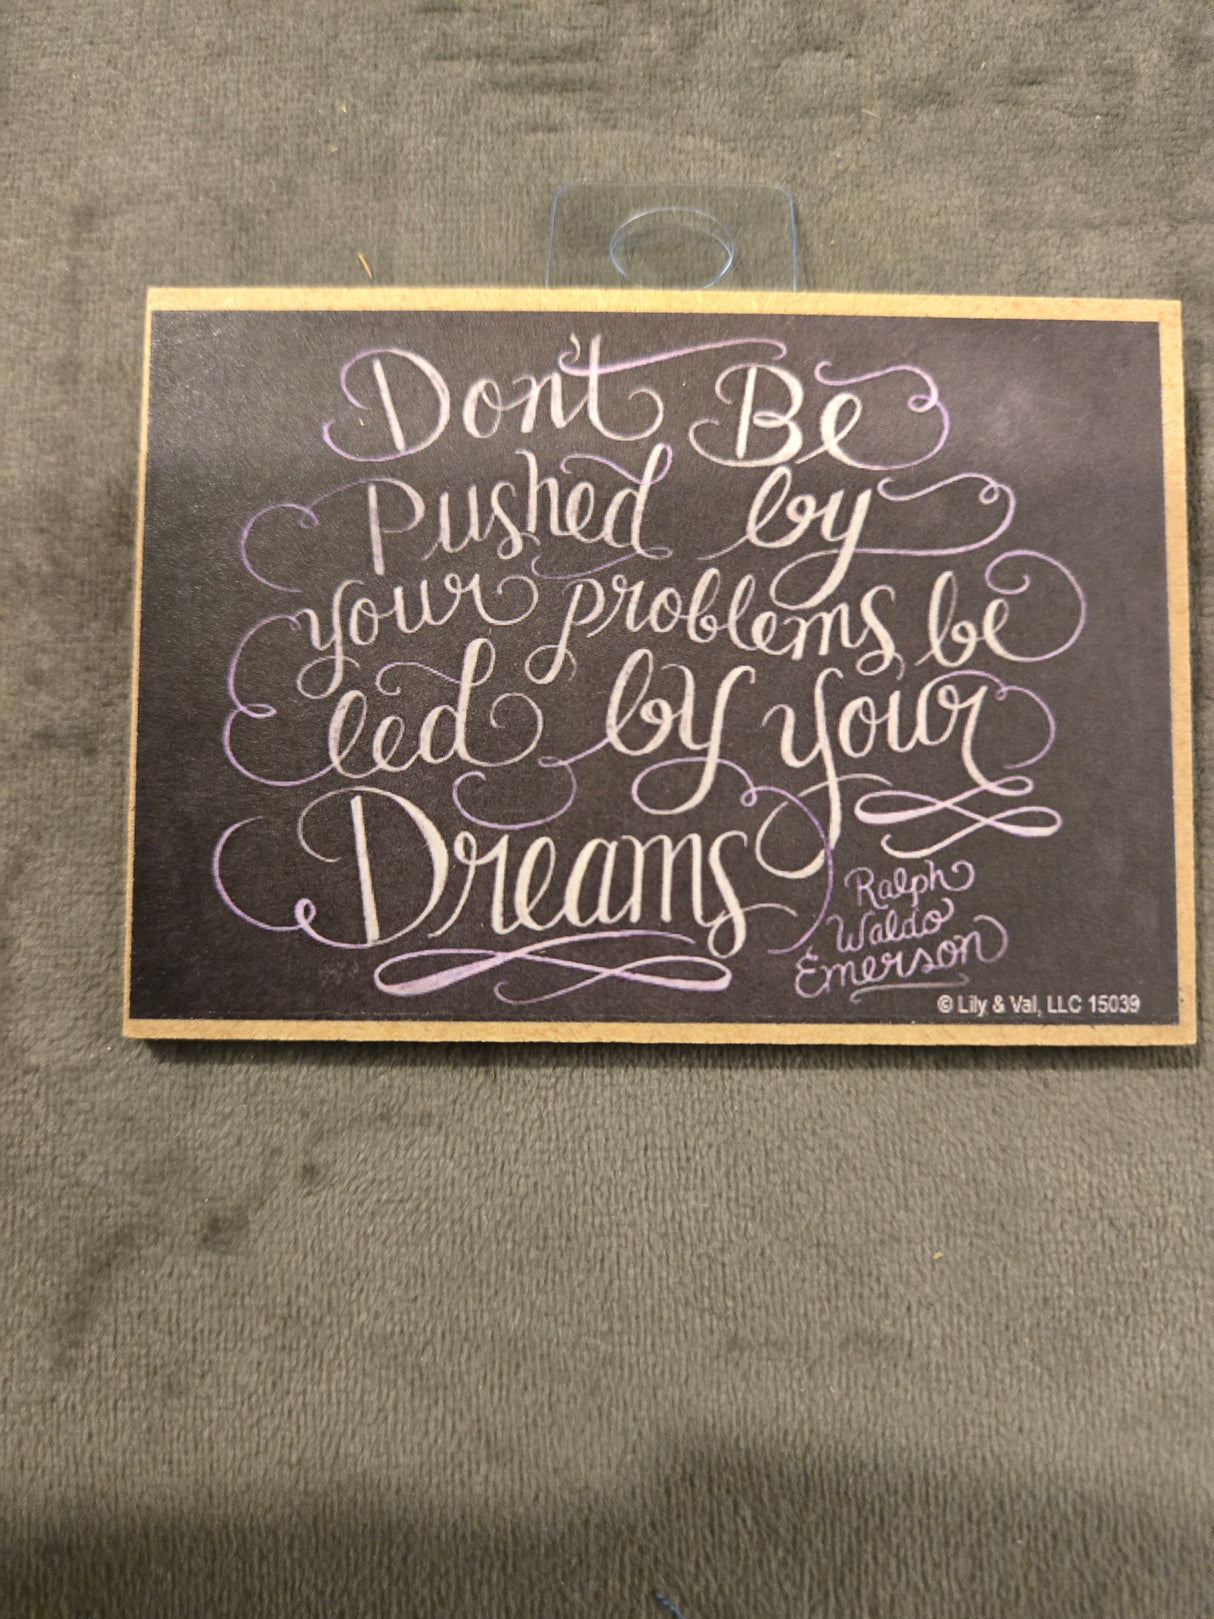 Don't Be
Pushed by
your problems be
led by your
Dreams
Ralph
Waldo
Emerson
© Lily & Val, LLC 15039